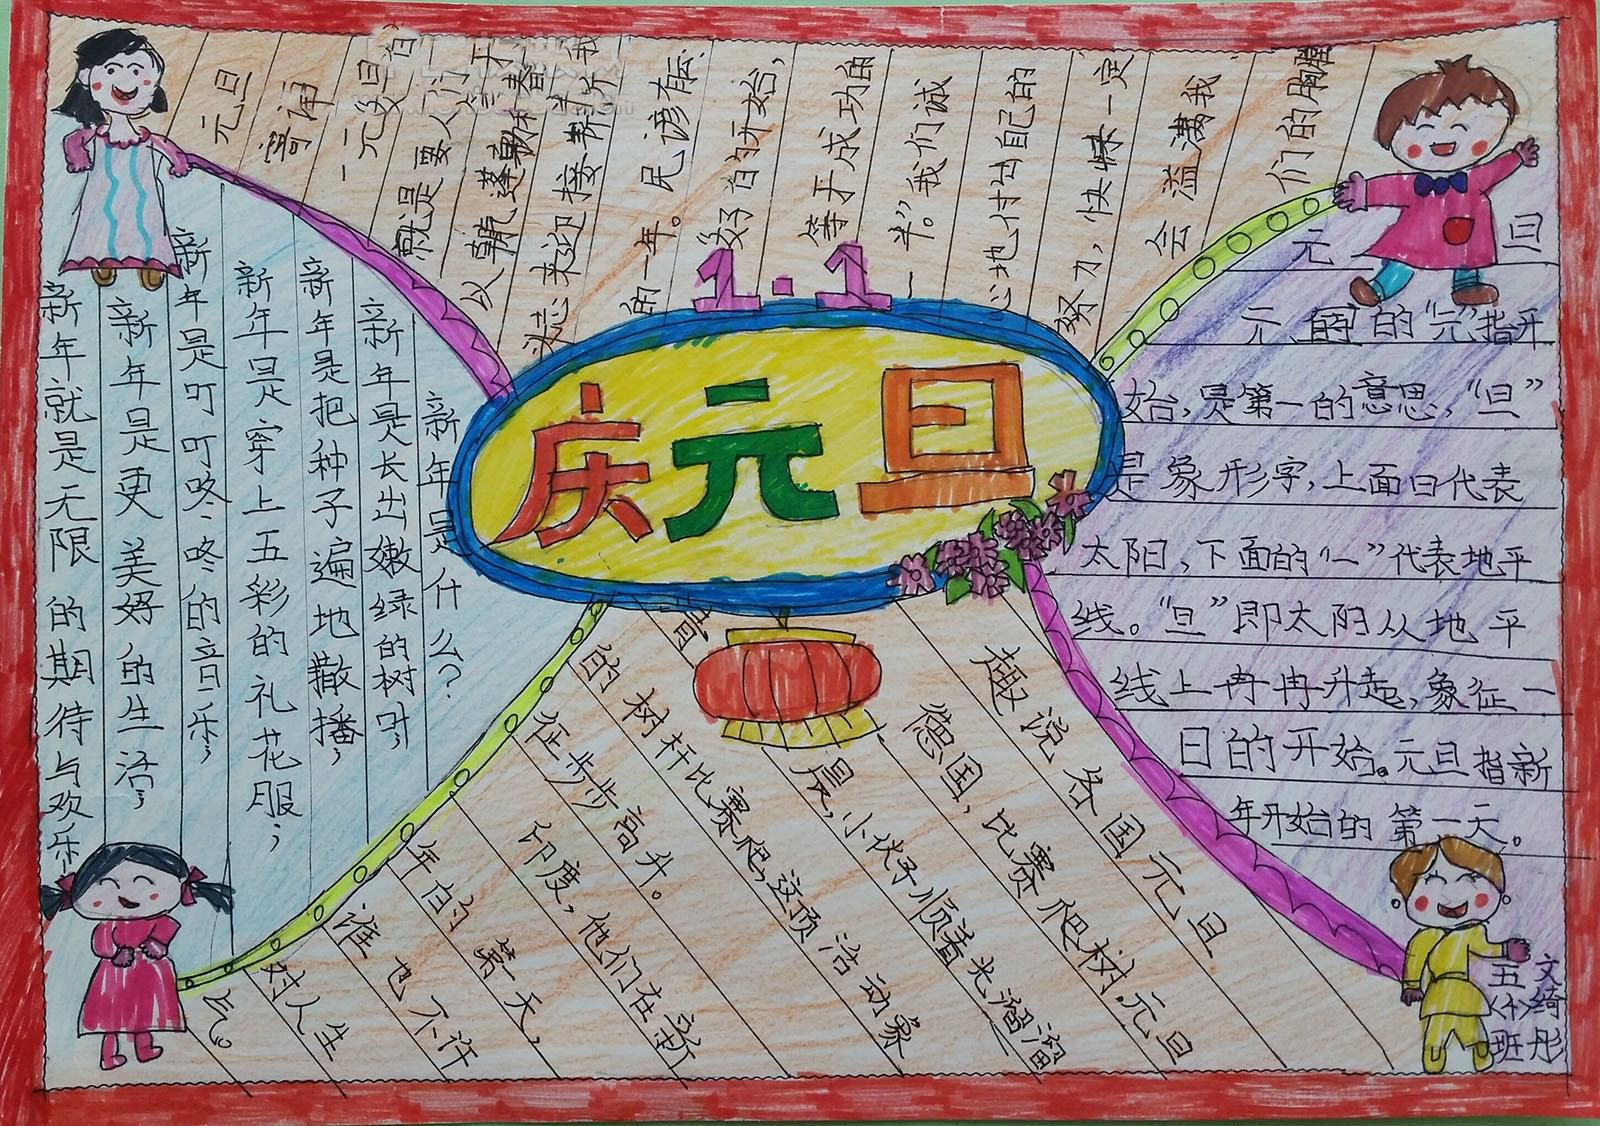 1·1
庆元旦
元旦
寄语
一元复旦
就是要人们
以朝
来迎接
的一年。民谚有:
好的开始,
等于成功的
一半。”我们诚
心地付出自己的
努力,快乐一定
会溢满我
们的胸膛
元旦
元旦的“元”指开
始,是第一的意思,“旦”
是象形字,上面日代表
太阳,下面的“一”代表地平
线。“旦”即太阳从地平
线上冉冉升起,象征一
日的开始。元旦指新
年开始的第一天。
新年是什么?
新年是长出嫩绿的树叶;
新年是把种子遍地撒播;
新年是穿上五彩的礼花服;
新年是叮叮咚咚的音乐;
新年是更美好的生活;
新年就是无限的期待与欢乐
趣说各国元旦
德国,比赛爬树。元旦
晨,小伙子顺着光溜溜
的树杆比赛爬,这项活动象
征步步高升。
印度,他们在新
年的第一天,
谁也不许
对人生
气。
五<十>班
文绮彤